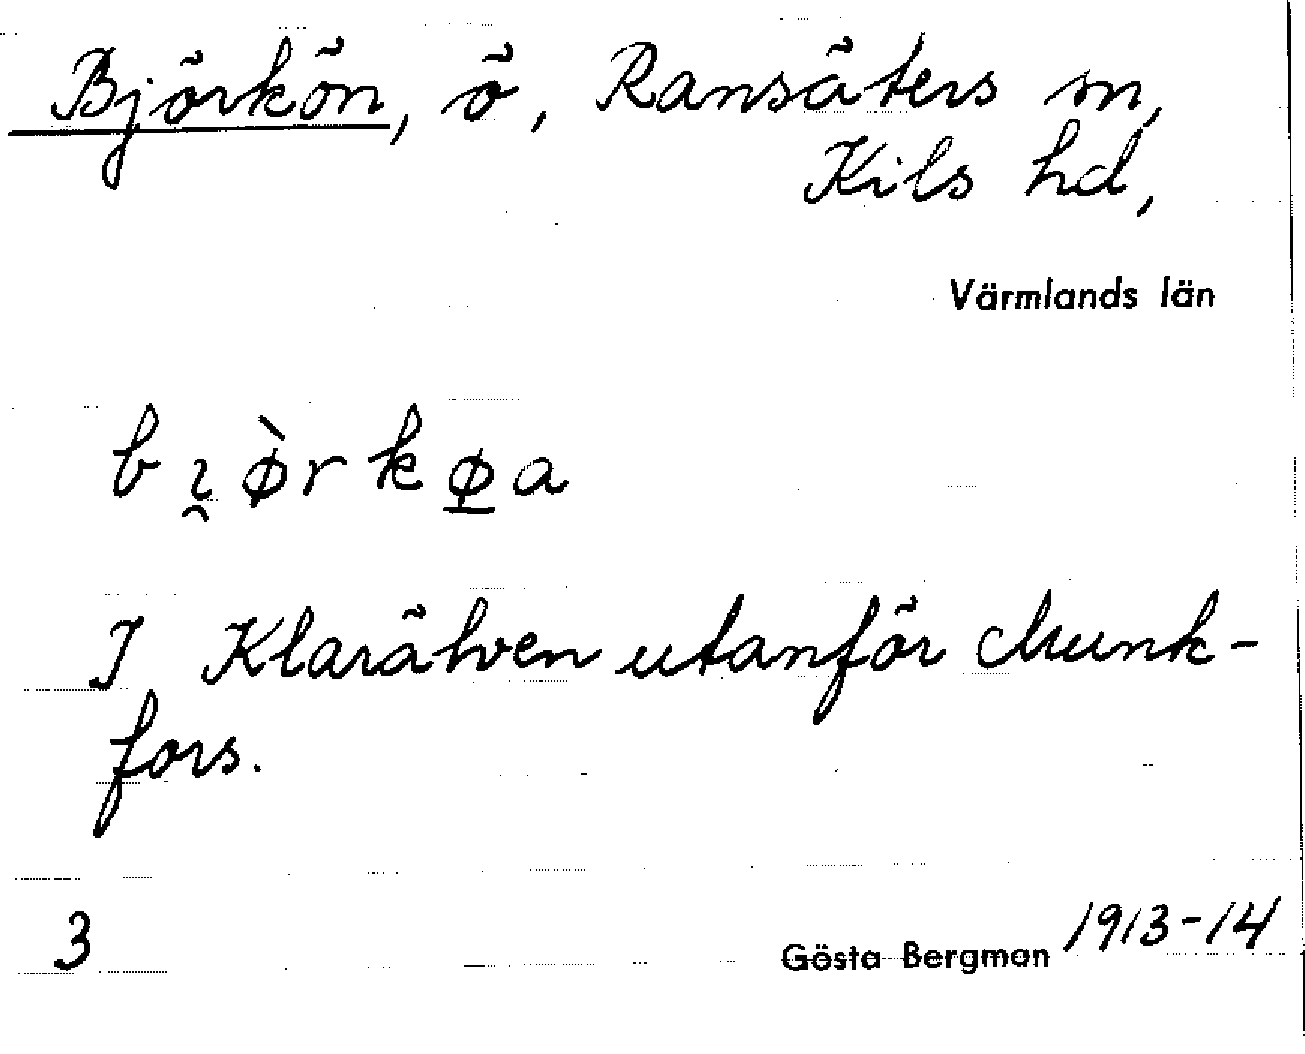 Björkön, ö, Ransäters sn,
Kils hd,
Värmlands län
bı̯ø̀rkø̲a
I Klarälven utanför Munk-
fors.
3
Gösta Bergman 1913-14